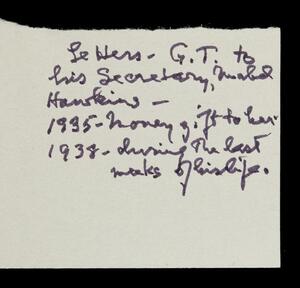 Letters - G.T. to
his Secretary, Mabel
Hawkins -
1935 - Money gift to her
1938 - during the last
weeks of his life.